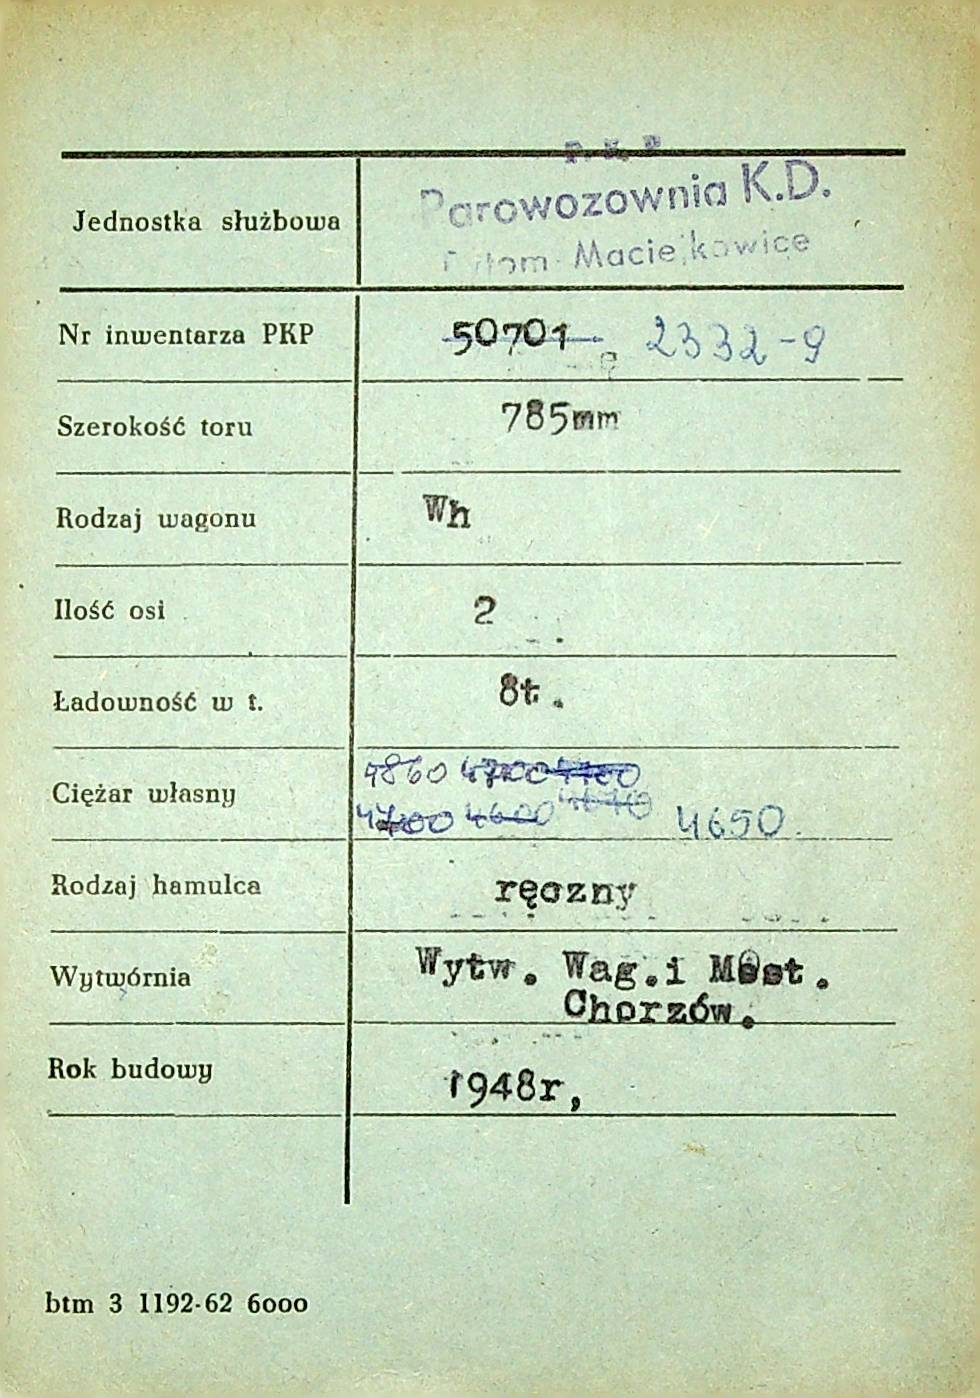 P. K. P
Parowozownia K.D.
Jednostka służbowa
Bytom Maciejkowice
Nr inwentarza PKP 50701 2332-9
Szerokość toru 785mm
Rodzaj wagonu Wh
Ilość osi 2
Ładowność w t. 8t.
4860 4700
Ciężar własny
4700 4600 4650
Rodzaj hamulca ręczny
Wytwórnia Wytw. Wag.i Most.
Chorzów.
Rok budowy 1948r,
btm 3 1192-62 6000